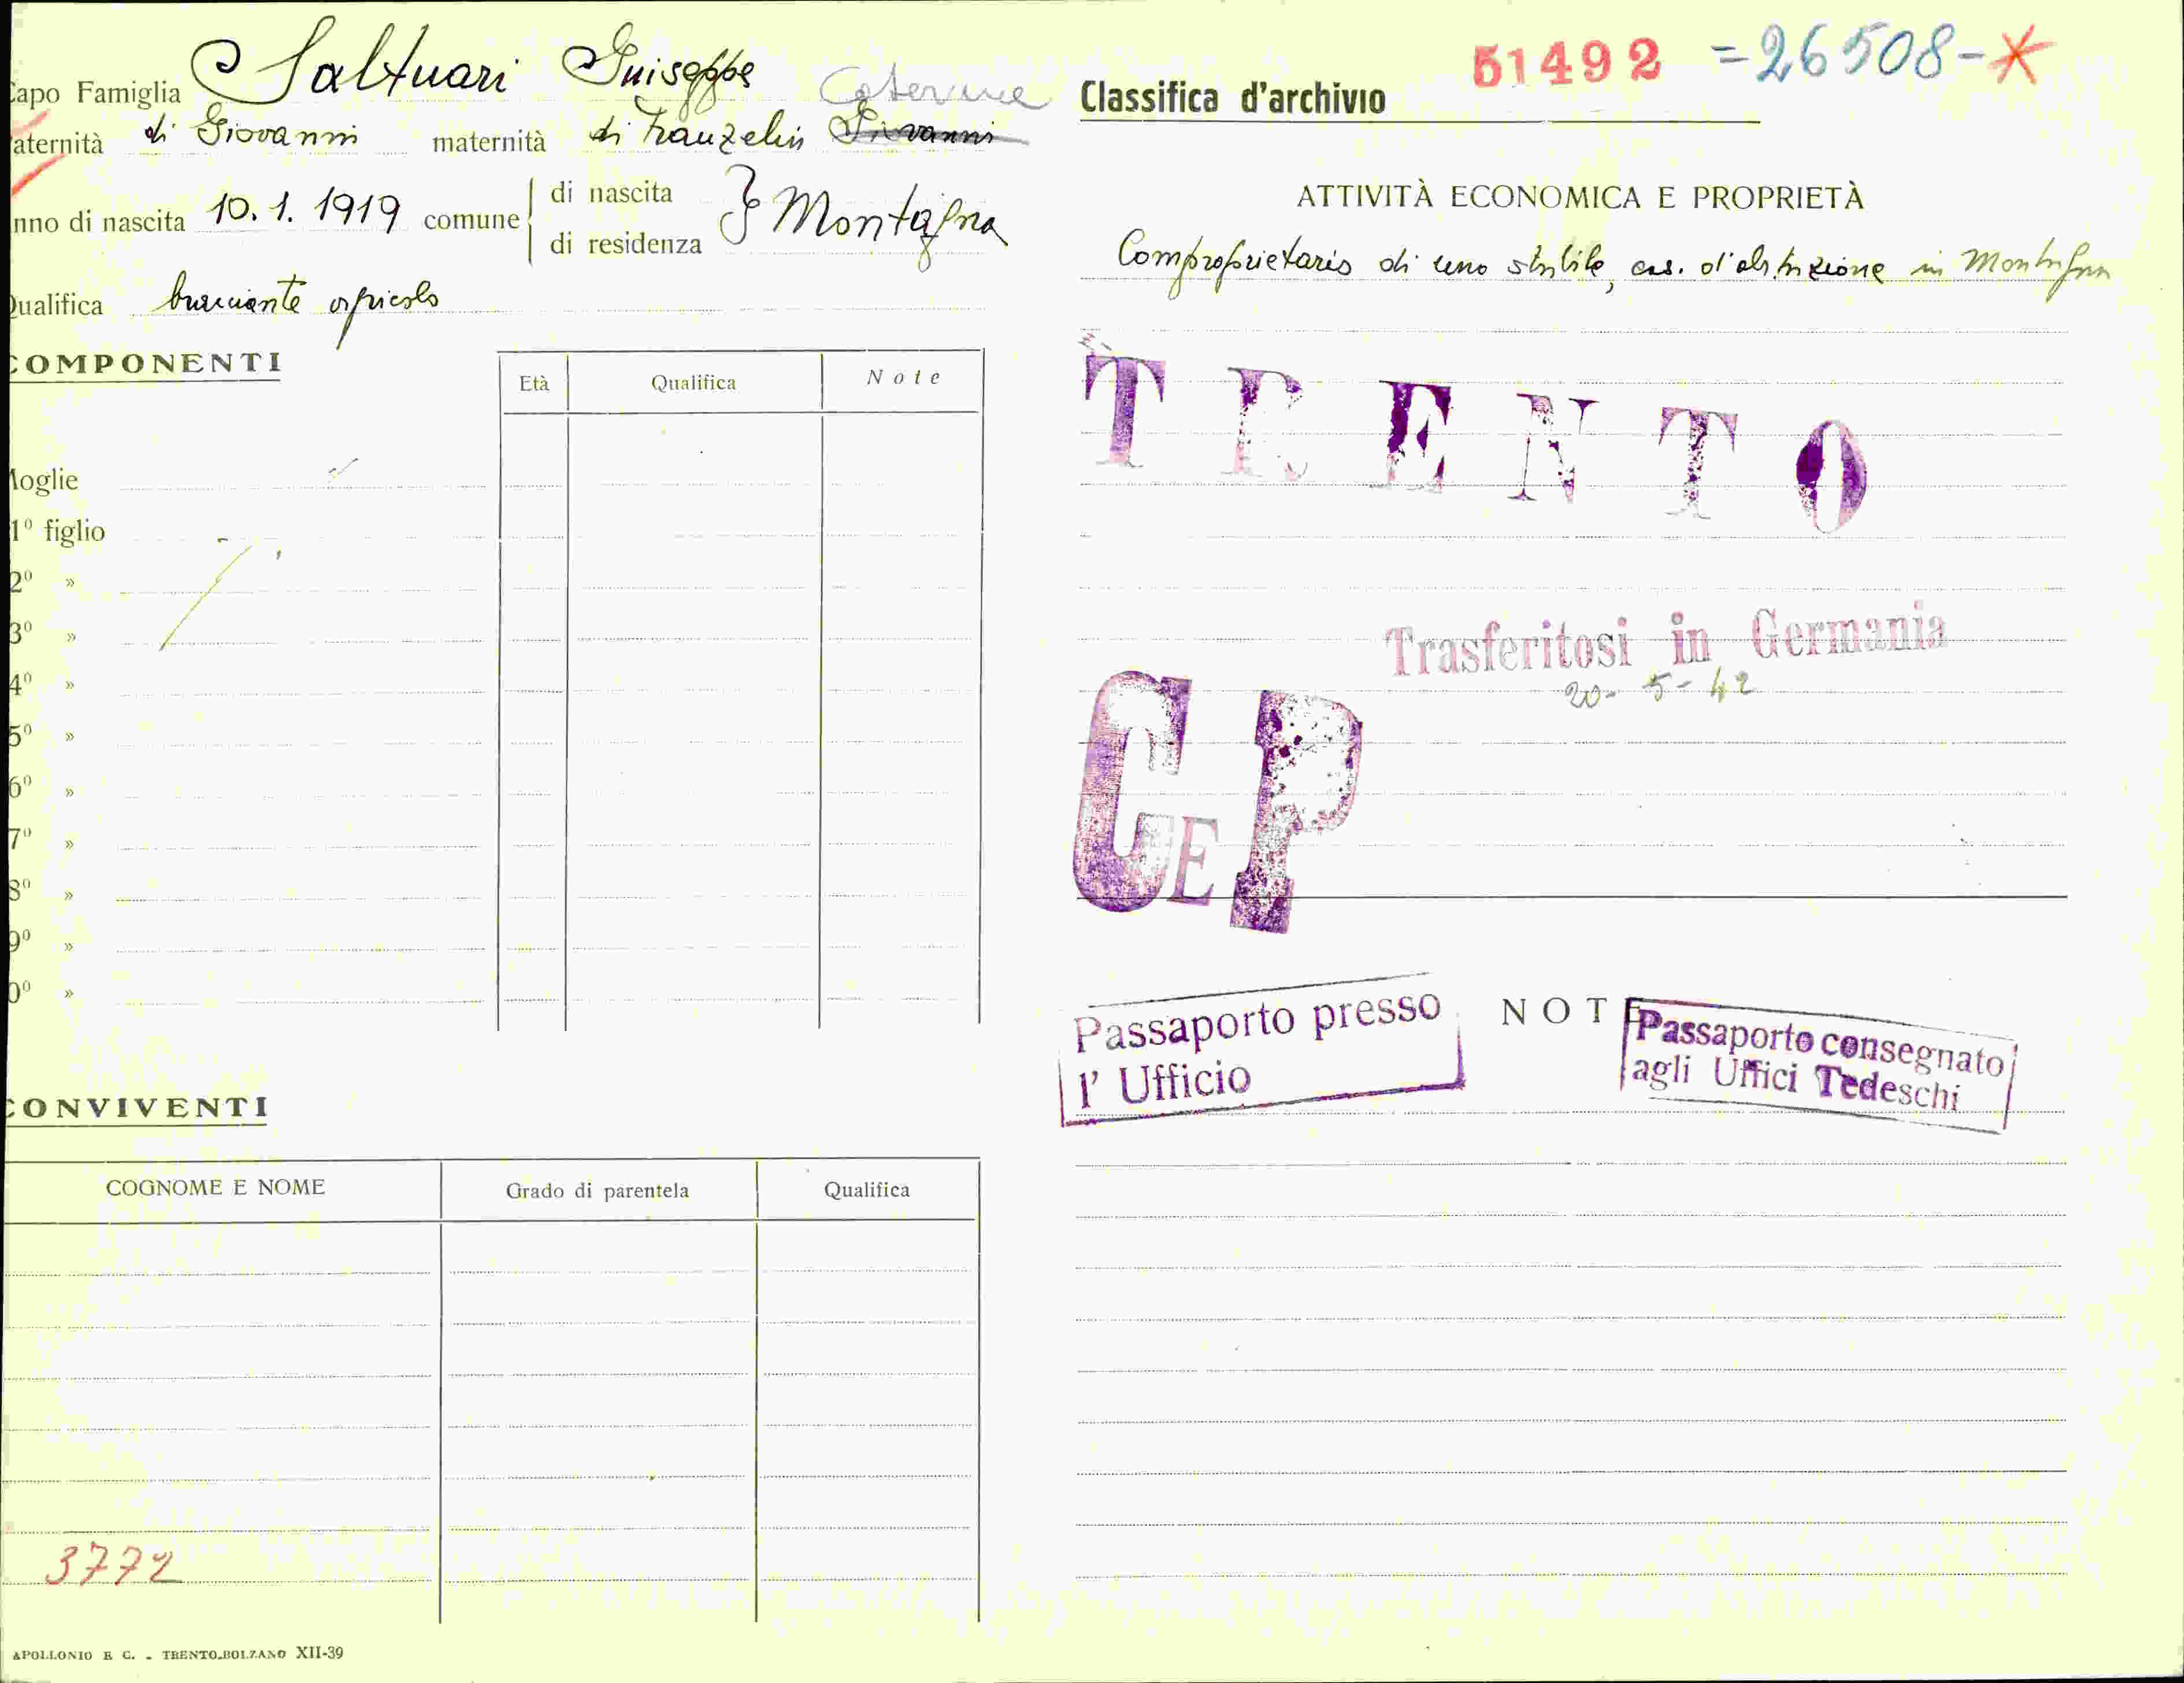 Capo Famiglia Saltuari Guiseppe
Caterina
paternità di Giovanni maternità di Franzelin Giovanni
anno di nascita 10.1.1919 comune di nascita Montagna
di residenza
Qualifica bracciante agricolo
COMPONENTI
Età Qualifica Note
Moglie
1º figlio
2º »
3º »
4º »
5º »
6º »
7º »
8º »
9º »
0º »
CONVIVENTI
COGNOME E NOME Grado di parentela Qualifica
3772
APOLLONIO E C. - TRENTO-BOLZANO XII-39
51492 =26508-*
Classifica d'archivio
ATTIVITÀ ECONOMICA E PROPRIETÀ
Comproprietario di uno stabile, cas. d'abitazione in Montagna
TRENTO
Trasferitosi in Germania
20-5-42
CEP
NOTE
Passaporto presso
l' Ufficio
Passaporto consegnato
agli Uffici Tedeschi